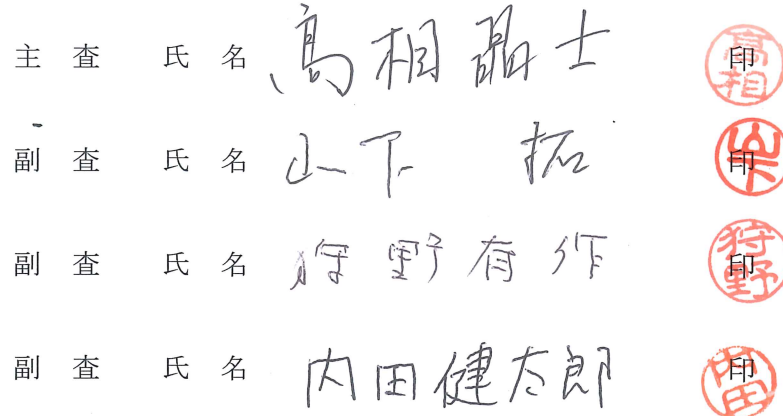 主査 氏名 高相晶士 印 高相
副査 氏名 山下 拓 印 山下
副査 氏名 狩野有作 印 狩野
副査 氏名 内田健太郎 印 内田